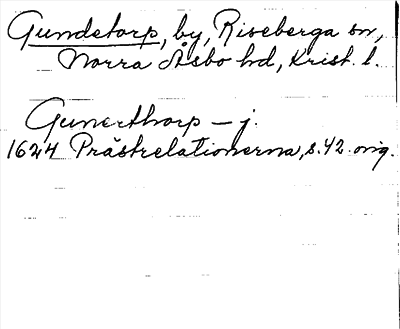 Gundetorp, by, Riseberga sn,
Norra Åsbo hd, Krist. l.
Gunerthorp – j.
1624 Prästrelationerna, s. 42. orig.